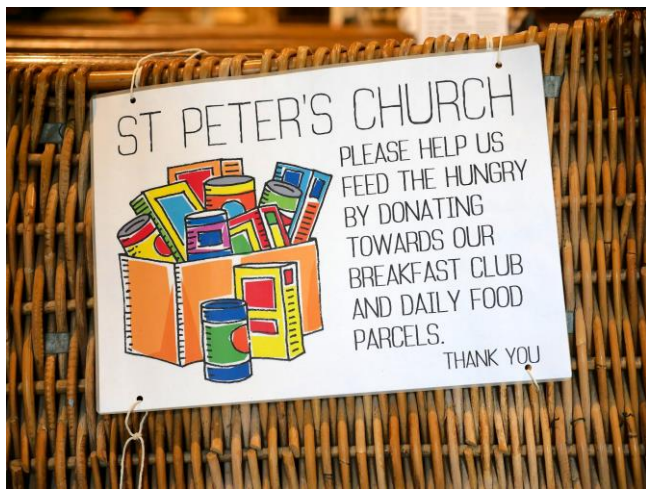 ST PETER'S CHURCH
PLEASE HELP US
FEED THE HUNGRY
BY DONATING
TOWARDS OUR
BREAKFAST CLUB
AND DAILY FOOD
PARCELS.
THANK YOU